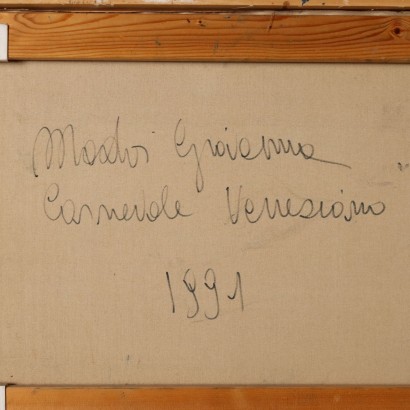 Giovanna
Carnevale Veneziano
1991